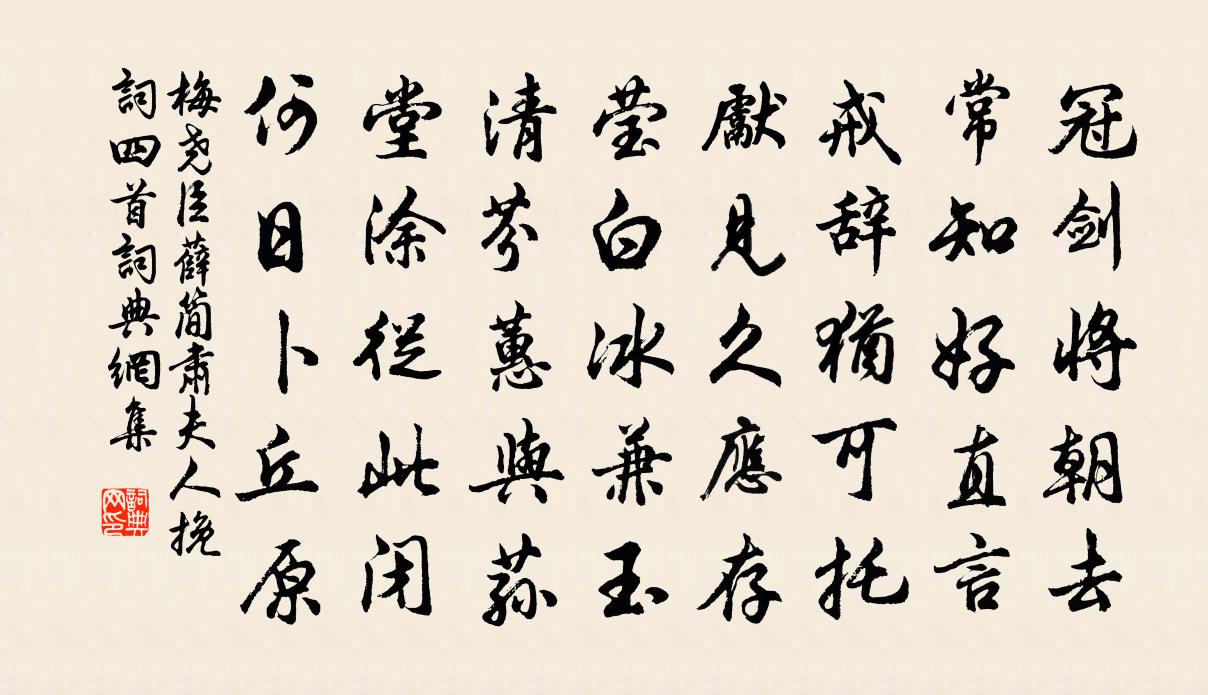 冠剑将朝去
常知好直言
戒辞犹可托
獻見久應存
莹白冰兼玉
清芬蕙與荪
堂涂從此闭
何日卜丘原
梅尧臣薛简肃夫人挽
詞四首詞典網集
詞典网印